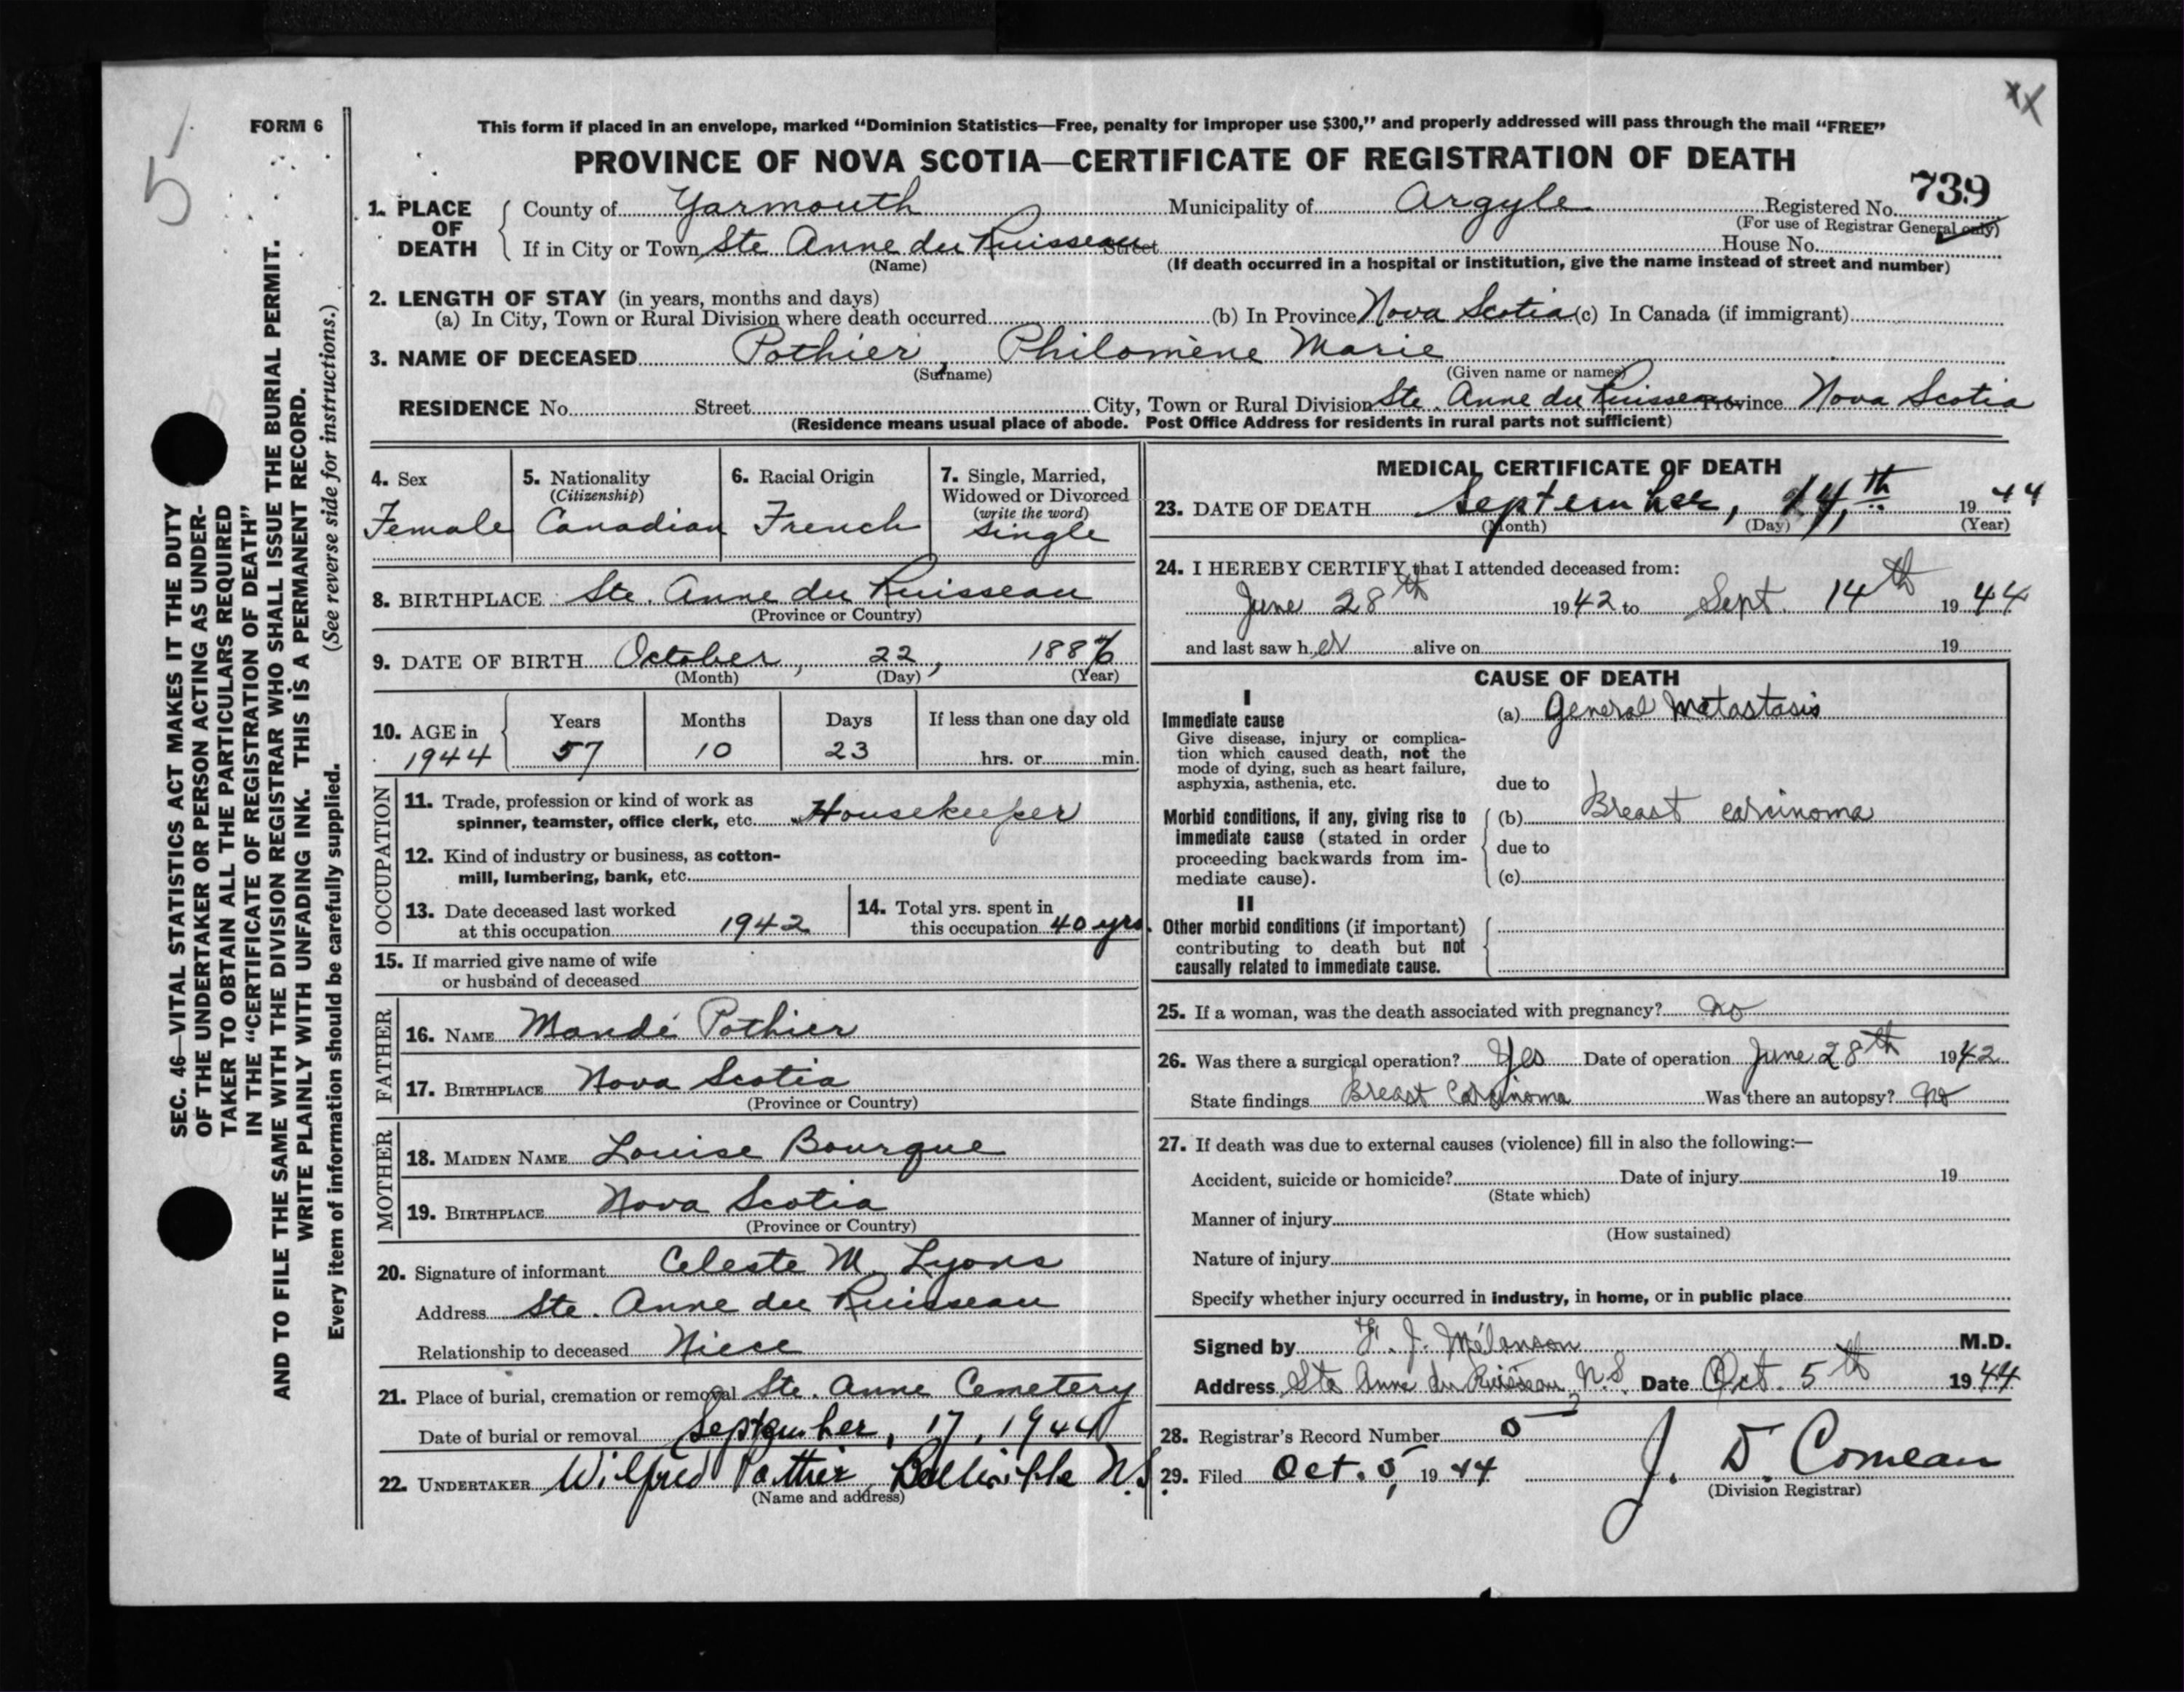 XX
5
FORM 6
This form if placed in an envelope, marked "Dominion Statistics—Free, penalty for improper use $300," and properly addressed will pass through the mail "FREE"
PROVINCE OF NOVA SCOTIA—CERTIFICATE OF REGISTRATION OF DEATH
739
1. PLACE OF DEATH County of Yarmouth Municipality of Argyle Registered No.
(For use of Registrar General only)
If in City or Town Ste Anne du Ruisseau Street House No.
(Name) (If death occurred in a hospital or institution, give the name instead of street and number)
2. LENGTH OF STAY (in years, months and days)
(a) In City, Town or Rural Division where death occurred (b) In Province Nova Scotia (c) In Canada (if immigrant)
3. NAME OF DECEASED Pothier, Philomène Marie
(Surname) (Given name or names)
RESIDENCE No. Street City, Town or Rural Division Ste. Anne du Ruisseau Province Nova Scotia
(Residence means usual place of abode. Post Office Address for residents in rural parts not sufficient)
4. Sex
Female
5. Nationality
(Citizenship)
Canadian
6. Racial Origin
French
7. Single, Married,
Widowed or Divorced
(write the word)
Single
8. BIRTHPLACE Ste. Anne du Ruisseau
(Province or Country)
9. DATE OF BIRTH October, 22, 1886
(Month) (Day) (Year)
10. AGE in
1944
Years Months Days If less than one day old
57 10 23 hrs. or min.
OCCUPATION
11. Trade, profession or kind of work as
spinner, teamster, office clerk, etc. Housekeeper
12. Kind of industry or business, as cotton-
mill, lumbering, bank, etc.
13. Date deceased last worked
at this occupation 1942
14. Total yrs. spent in
this occupation 40 yrs.
15. If married give name of wife
or husband of deceased
FATHER
16. NAME Mandé Pothier
17. BIRTHPLACE Nova Scotia
(Province or Country)
MOTHER
18. MAIDEN NAME Louise Bourque
19. BIRTHPLACE Nova Scotia
(Province or Country)
20. Signature of informant Celeste M. Lyons
Address Ste. Anne du Ruisseau
Relationship to deceased Niece
21. Place of burial, cremation or removal Ste. Anne Cemetery
Date of burial or removal September, 17, 1944
22. UNDERTAKER Wilfred Pothier Belleville N.S.
(Name and address)
MEDICAL CERTIFICATE OF DEATH
23. DATE OF DEATH September, 14,th 1944
(Month) (Day) (Year)
24. I HEREBY CERTIFY that I attended deceased from:
June 28th 1942 to Sept. 14th 1944
and last saw her alive on 19
CAUSE OF DEATH
I
Immediate cause
Give disease, injury or complica-
tion which caused death, not the
mode of dying, such as heart failure,
asphyxia, asthenia, etc.
(a) General Metastasis
due to
Morbid conditions, if any, giving rise to
immediate cause (stated in order
proceeding backwards from im-
mediate cause).
(b) Breast carcinoma
due to
(c)
II
Other morbid conditions (if important)
contributing to death but not
causally related to immediate cause.
25. If a woman, was the death associated with pregnancy? No
26. Was there a surgical operation? Yes Date of operation June 28th 1942
State findings Breast Carcinoma Was there an autopsy? No
27. If death was due to external causes (violence) fill in also the following:—
Accident, suicide or homicide? Date of injury 19
(State which)
Manner of injury
(How sustained)
Nature of injury
Specify whether injury occurred in industry, in home, or in public place
Signed by F. J. Mélanson M.D.
Address Ste Anne du Ruisseau, N.S. Date Oct. 5th 1944
28. Registrar's Record Number 5
29. Filed Oct. 5, 1944 J. D. Comeau
(Division Registrar)
SEC. 46—VITAL STATISTICS ACT MAKES IT THE DUTY
OF THE UNDERTAKER OR PERSON ACTING AS UNDER-
TAKER TO OBTAIN ALL THE PARTICULARS REQUIRED
IN THE "CERTIFICATE OF REGISTRATION OF DEATH"
AND TO FILE THE SAME WITH THE DIVISION REGISTRAR WHO SHALL ISSUE THE BURIAL PERMIT.
WRITE PLAINLY WITH UNFADING INK. THIS IS A PERMANENT RECORD.
Every item of information should be carefully supplied. (See reverse side for instructions.)